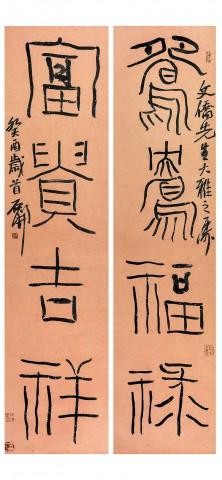 鴛鴦福祿
文僑先生大雅之屬
富貴吉祥
癸酉歲首石開